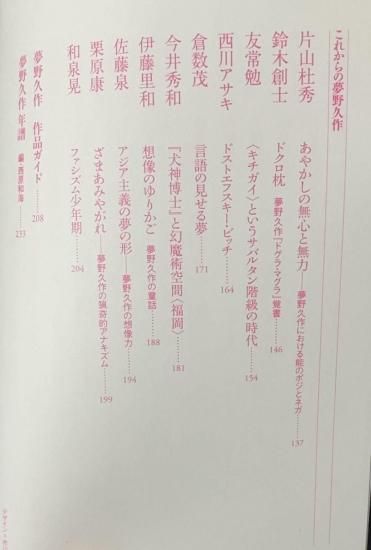 これからの夢野久作
片山杜秀 あやかしの無心と無力――夢野久作における能のポジとネガ……137
鈴木創士 ドクロ枕 夢野久作『ドグラ・マグラ』覚書……146
友常勉 〈キチガイ〉というサバルタン階級の時代……154
西川アサキ ドストエフスキー・ピッチ……164
倉数茂 言語の見せる夢……171
今井秀和 『犬神博士』と幻魔術空間〈福岡〉……181
伊藤里和 想像のゆりかご 夢野久作の童話……188
佐藤泉 アジア主義の夢の形 夢野久作の想像力……194
栗原康 ざまあみやがれ――夢野久作の猟奇的アナキズム……199
和泉晃 ファシズム少年期……204
夢野久作 作品ガイド……208
夢野久作 年譜 編・西原和海……233